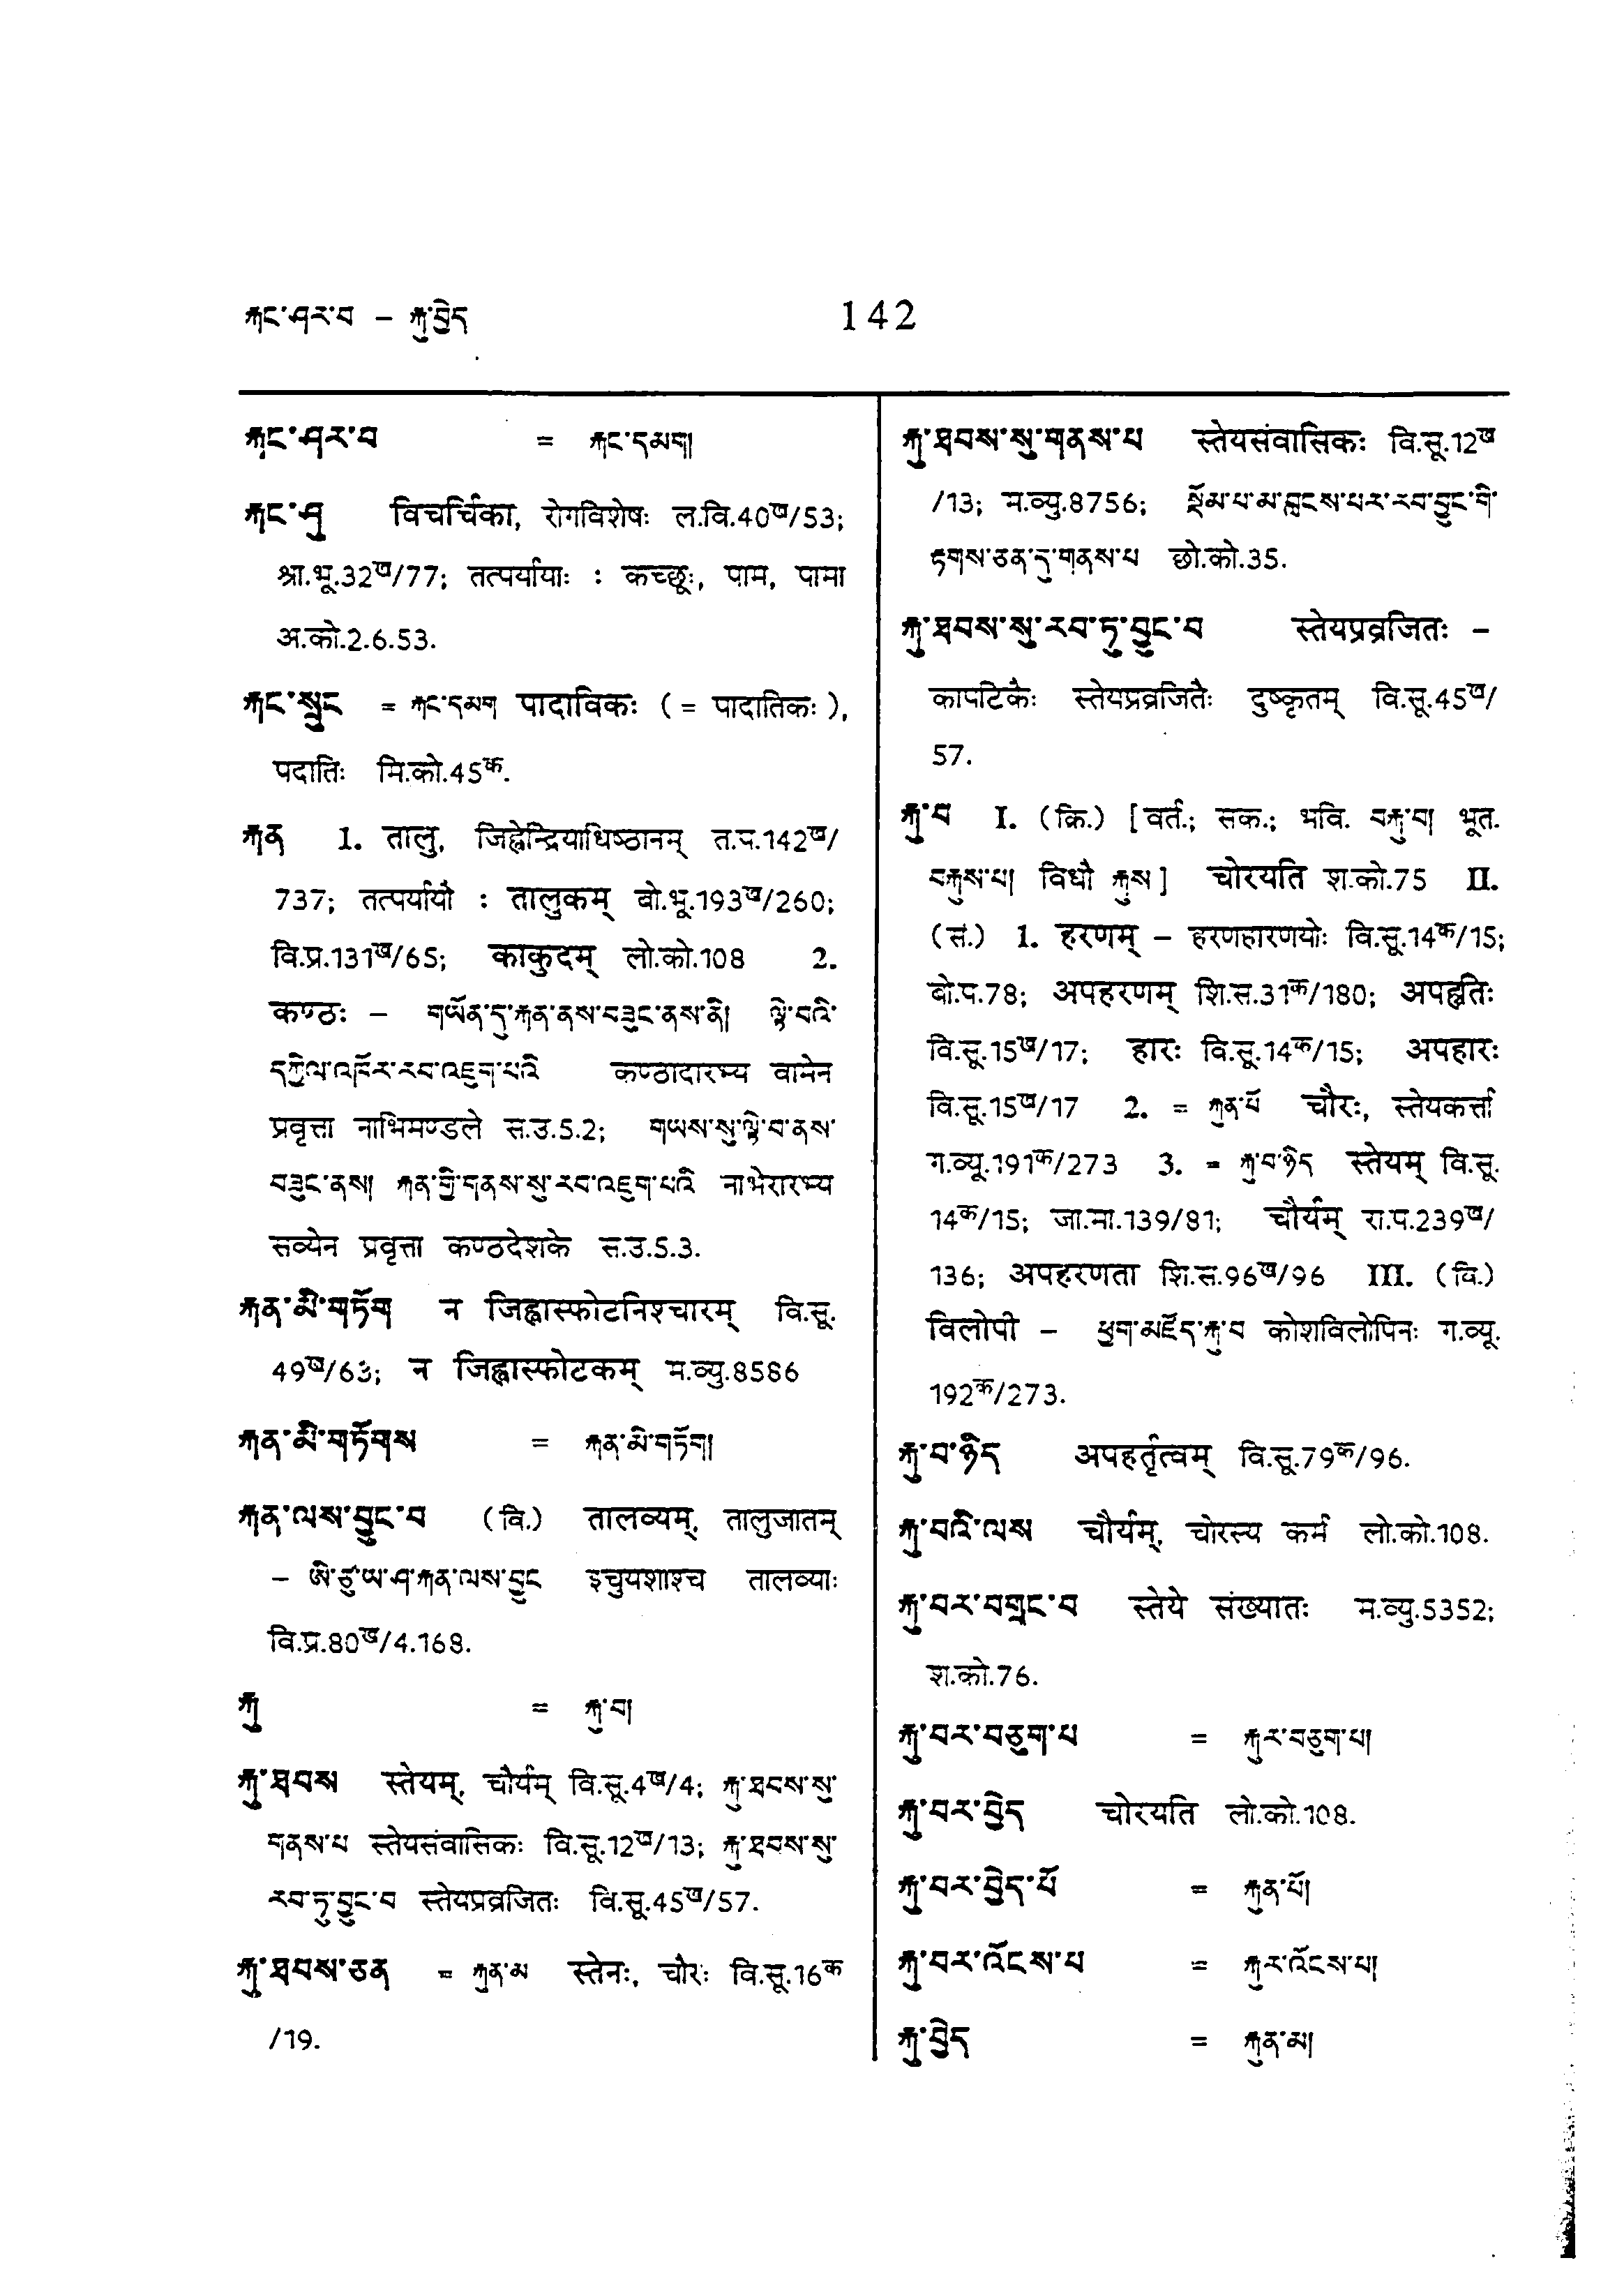 རྐང་ཤར་བ – རྐུ་བྱེད
142
རྐང་ཤར་བ = རྐང་དམག།
རྐང་ཤུ विचर्चिका, रोगविशेषः ल.वि.40ख/53;
श्रा.भू.32ख/77; तत्पर्यायाः : कच्छूः, पाम, पामा
अ.को.2.6.53.
རྐང་སྲུང = རྐང་དམག पादाविकः (= पादातिकः),
पदातिः मि.को.45क.
རྐན 1. तालु, जिह्वेन्द्रियाधिष्ठानम् त.प.142ख/
737; तत्पर्यायौ : तालुकम् बो.भू.193ख/260;
वि.प्र.131ख/65; काकुदम् लो.को.108 2.
कण्ठः – གཡོན་དུ་རྐན་ནས་བཟུང་ནས་ནི། ལྟེ་བའི་
དཀྱིལ་འཁོར་རབ་འཇུག་པའི कण्ठादारभ्य वामेन
प्रवृत्ता नाभिमण्डले स.उ.5.2; གཡས་སུ་ལྟེ་བ་ནས་
བཟུང་ནས། རྐན་གྱི་གནས་སུ་རབ་འཇུག་པའི नाभेरारभ्य
सव्येन प्रवृत्ता कण्ठदेशके स.उ.5.3.
རྐན་མི་གཏོག न जिह्वास्फोटनिश्चारम् वि.सू.
49ख/63; न जिह्वास्फोटकम् म.व्यु.8586
རྐན་མི་གཏོགས = རྐན་མི་གཏོག།
རྐན་ལས་བྱུང་བ (वि.) तालव्यम्, तालुजातम्
– ཨི་ཙུ་ཡ་ཤ་རྐན་ལས་བྱུང इचुयशाश्च तालव्याः
वि.प्र.80ख/4.168.
རྐུ = རྐུ་བ།
རྐུ་ཐབས स्तेयम्, चौर्यम् वि.सू.4ख/4; རྐུ་ཐབས་སུ་
གནས་པ स्तेयसंवासिकः वि.सू.12ख/13; རྐུ་ཐབས་སུ་
རབ་ཏུ་བྱུང་བ स्तेयप्रव्रजितः वि.सू.45ख/57.
རྐུ་ཐབས་ཅན = རྐུན་མ स्तेनः, चौरः वि.सू.16क
/19.
རྐུ་ཐབས་སུ་གནས་པ स्तेयसंवासिकः वि.सू.12ख
/13; म.व्यु.8756; སྡོམ་པ་མ་བླངས་པར་རབ་བྱུང་གི་
རྟགས་ཅན་དུ་གནས་པ छो.को.35.
རྐུ་ཐབས་སུ་རབ་ཏུ་བྱུང་བ स्तेयप्रव्रजितः –
कापटिकैः स्तेयप्रव्रजितैः दुष्कृतम् वि.सू.45ख/
57.
རྐུ་བ I. (क्रि.) [वर्त.; सक.; भवि. བརྐུ་བ། भूत.
བརྐུས་པ། विधौ རྐུས] चोरयति श.को.75 II.
(सं.) 1. हरणम् – हरणहारणयोः वि.सू.14क/15;
बो.प.78; अपहरणम् शि.स.31क/180; अपहृतिः
वि.सू.15ख/17; हारः वि.सू.14क/15; अपहारः
वि.सू.15ख/17 2. = རྐུན་པོ चौरः, स्तेयकर्त्ता
ग.व्यू.191क/273 3. = རྐུ་བ་ཉིད स्तेयम् वि.सू.
14क/15; जा.मा.139/81; चौर्यम् रा.प.239ख/
136; अपहरणता शि.स.96ख/96 III. (वि.)
विलोपी – ཕྱག་མཛོད་རྐུ་བ कोशविलोपिनः ग.व्यू.
192क/273.
རྐུ་བ་ཉིད अपहर्तृत्वम् वि.सू.79क/96.
རྐུ་བའི་ལས चौर्यम्, चोरस्य कर्म लो.को.108.
རྐུ་བར་བགྲང་བ स्तेये संख्यातः म.व्यु.5352;
श.को.76.
རྐུ་བར་བཅུག་པ = རྐུར་བཅུག་པ།
རྐུ་བར་བྱེད चोरयति लो.को.108.
རྐུ་བར་བྱེད་པོ = རྐུན་པོ།
རྐུ་བར་འོངས་པ = རྐུར་འོངས་པ།
རྐུ་བྱེད = རྐུན་མ།